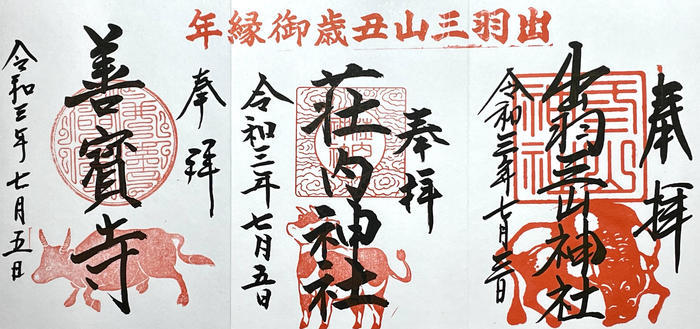 出羽三山丑歳御縁年
奉拝
出羽三山神社
令和三年七月三日
奉拝
荘内神社
令和三年七月五日
奉拝
善寳寺
令和三年七月五日